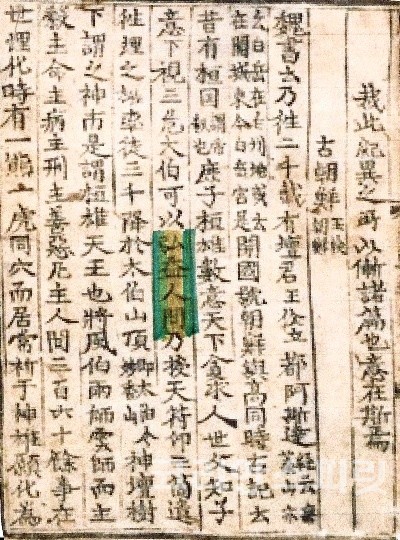 哉此紀異之所以慚諸篇也意在斯焉
古朝鮮 王倹朝鮮
魏書云乃往二千載有壇君王倹立都阿斯達 經云無葉山亦
云白岳在白州地或云在開城東今白岳宮是 開國號朝鮮與高同時古記云
昔有桓国 謂帝釋也 庶子桓雄數意天下貪求人世父知子
意下視三危太伯可以弘益人間乃授天符印三箇遣
徃理之雄率徒三千降於太伯山頂 神壇樹
下謂之神市是謂桓雄天王也將風伯雨師雲師而主
穀主命主病主刑主善惡凡主人間三百六十餘事在
世理化時有一熊一虎同穴而居常祈于神雄願化為